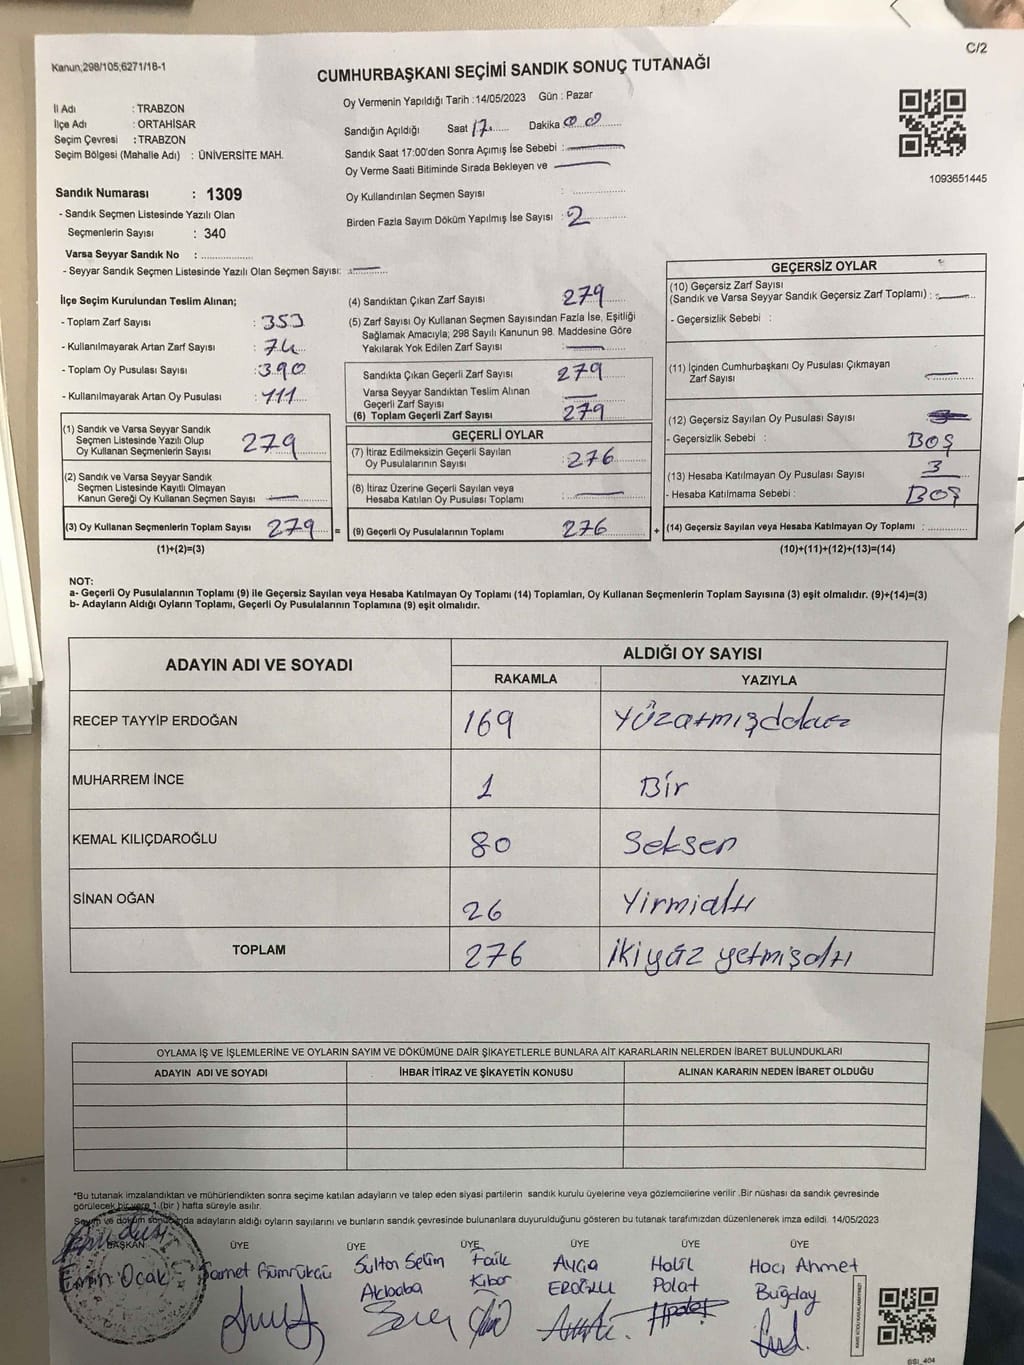 C/2
Kanun;298/105;6271/18-1
CUMHURBAŞKANI SEÇİMİ SANDIK SONUÇ TUTANAĞI
İl Adı : TRABZON
İlçe Adı : ORTAHİSAR
Seçim Çevresi : TRABZON
Seçim Bölgesi (Mahalle Adı) : ÜNİVERSİTE MAH.
Sandık Numarası : 1309
- Sandık Seçmen Listesinde Yazılı Olan
Seçmenlerin Sayısı : 340
Varsa Seyyar Sandık No :
- Seyyar Sandık Seçmen Listesinde Yazılı Olan Seçmen Sayısı: —
Oy Vermenin Yapıldığı Tarih :14/05/2023 Gün : Pazar
Sandığın Açıldığı Saat 17 Dakika 00
Sandık Saat 17:00'den Sonra Açımış İse Sebebi : —
Oy Verme Saati Bitiminde Sırada Bekleyen ve —
Oy Kullandırılan Seçmen Sayısı :
Birden Fazla Sayım Döküm Yapılmış İse Sayısı : 2
1093651445
İlçe Seçim Kurulundan Teslim Alınan;
- Toplam Zarf Sayısı : 353
- Kullanılmayarak Artan Zarf Sayısı : 74
- Toplam Oy Pusulası Sayısı : 390
- Kullanılmayarak Artan Oy Pusulası : 111
(1) Sandık ve Varsa Seyyar Sandık
Seçmen Listesinde Yazılı Olup
Oy Kullanan Seçmenlerin Sayısı 279
(2) Sandık ve Varsa Seyyar Sandık
Seçmen Listesinde Kayıtlı Olmayan
Kanun Gereği Oy Kullanan Seçmen Sayısı —
(3) Oy Kullanan Seçmenlerin Toplam Sayısı 279 =
(1)+(2)=(3)
(4) Sandıktan Çıkan Zarf Sayısı 279
(5) Zarf Sayısı Oy Kullanan Seçmen Sayısından Fazla İse, Eşitliği
Sağlamak Amacıyla; 298 Sayılı Kanunun 98. Maddesine Göre
Yakılarak Yok Edilen Zarf Sayısı : —
Sandıkta Çıkan Geçerli Zarf Sayısı 279
Varsa Seyyar Sandıktan Teslim Alınan
Geçerli Zarf Sayısı —
(6) Toplam Geçerli Zarf Sayısı 279
GEÇERLİ OYLAR
(7) İtiraz Edilmeksizin Geçerli Sayılan
Oy Pusulalarının Sayısı : 276
(8) İtiraz Üzerine Geçerli Sayılan veya
Hesaba Katılan Oy Pusulası Toplamı : —
(9) Geçerli Oy Pusulalarının Toplamı 276 +
GEÇERSİZ OYLAR
(10) Geçersiz Zarf Sayısı
(Sandık ve Varsa Seyyar Sandık Geçersiz Zarf Toplamı) : —
- Geçersizlik Sebebi :
(11) İçinden Cumhurbaşkanı Oy Pusulası Çıkmayan
Zarf Sayısı —
(12) Geçersiz Sayılan Oy Pusulası Sayısı
- Geçersizlik Sebebi : BOŞ
(13) Hesaba Katılmayan Oy Pusulası Sayısı 3
- Hesaba Katılmama Sebebi : BOŞ
(14) Geçersiz Sayılan veya Hesaba Katılmayan Oy Toplamı :
(10)+(11)+(12)+(13)=(14)
NOT:
a- Geçerli Oy Pusulalarının Toplamı (9) ile Geçersiz Sayılan veya Hesaba Katılmayan Oy Toplamı (14) Toplamları, Oy Kullanan Seçmenlerin Toplam Sayısına (3) eşit olmalıdır. (9)+(14)=(3)
b- Adayların Aldığı Oyların Toplamı, Geçerli Oy Pusulalarının Toplamına (9) eşit olmalıdır.
ADAYIN ADI VE SOYADI ALDIĞI OY SAYISI
RAKAMLA YAZIYLA
RECEP TAYYİP ERDOĞAN 169 Yüzatmışdokuz
MUHARREM İNCE 1 Bir
KEMAL KILIÇDAROĞLU 80 Seksen
SİNAN OĞAN 26 Yirmialtı
TOPLAM 276 İkiyüz yetmişaltı
OYLAMA İŞ VE İŞLEMLERİNE VE OYLARIN SAYIM VE DÖKÜMÜNE DAİR ŞİKAYETLERLE BUNLARA AİT KARARLARIN NELERDEN İBARET BULUNDUKLARI
ADAYIN ADI VE SOYADI İHBAR İTİRAZ VE ŞİKAYETİN KONUSU ALINAN KARARIN NEDEN İBARET OLDUĞU
*Bu tutanak imzalandıktan ve mühürlendikten sonra seçime katılan adayların ve talep eden siyasi partilerin sandık kurulu üyelerine veya gözlemcilerine verilir .Bir nüshası da sandık çevresinde
görülecek bir yere 1 (bir ) hafta süreyle asılır.
Sayım ve döküm sonucunda adayların aldığı oyların sayılarını ve bunların sandık çevresinde bulunanlara duyurulduğunu gösteren bu tutanak tarafımızdan düzenlenerek imza edildi. 14/05/2023
BAŞKAN ÜYE ÜYE ÜYE ÜYE ÜYE ÜYE
Emin Ocak Samet Gümrükçü Sultan Selim Akbaba Faik Kibar Ayça EROĞLU Halil Polat Hacı Ahmet Buğday
SSI_404